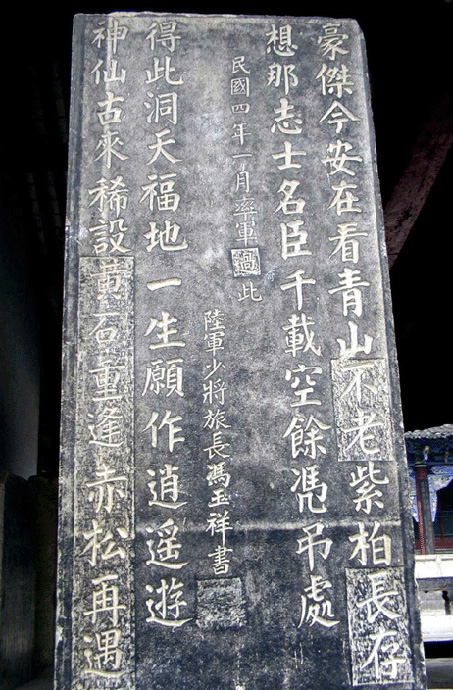 豪傑今安在看青山不老紫柏長存
想那志士名臣千載空餘憑吊處
民國四年一月率軍過此
陸軍少將旅長馮玉祥書
得此洞天福地一生願作逍遙遊
神仙古來稀設黃石重逢赤松再遇